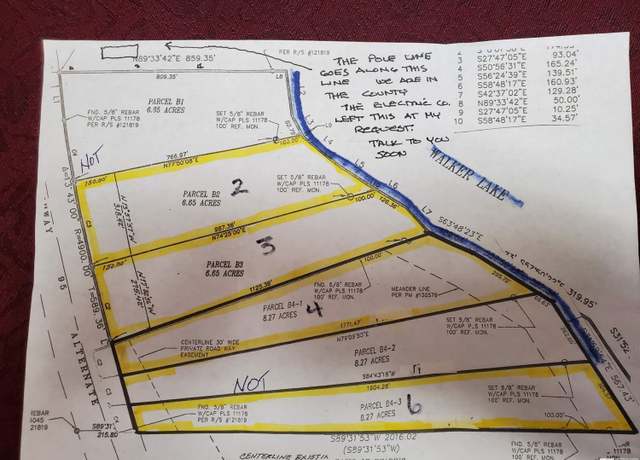 N89°33'42"E 859.35'
PER R/S #121819
809.35'
L8
THE POLE LINE
GOES ALONG THIS
LINE WE ARE IN
THE COUNTY
THE ELECTRIC CO.
LEFT THIS AT MY
REQUEST.
TALK TO YOU
SOON
3 S27°47'05"E 93.04'
4 S50°56'31"E 165.24'
5 S56°24'39"E 139.51'
6 S58°48'17"E 160.93'
7 S42°37'02"E 129.28'
8 N89°33'42"E 50.00'
9 S27°47'05"E 10.25'
10 S58°48'17"E 34.57'
PARCEL B1
6.65 ACRES
FND. 5/8" REBAR
W/CAP PLS 11178
PER R/S #121819
SET 5/8" REBAR
W/CAP PLS 11178
100' REF. MON.
L4
L5
L6
L7
WALKER LAKE
NOT
766.97'
N77°00'08"E
PARCEL B2
6.65 ACRES
2
SET 5/8" REBAR
W/CAP PLS 11178
100' REF. MON.
100.00'
S63°48'23"E
987.36'
N74°25'00"E
3
PARCEL B3
6.65 ACRES
1125.39'
100.00'
319.95'
HWAY 95 ALTERNATE
R=4900.00'
L=589.36'
FND. 5/8" REBAR
W/CAP PLS 11178
100' REF. MON.
MEANDER LINE
PER PM #130576
PARCEL B4-1
8.27 ACRES
4
SET 5/8" REBAR
W/CAP PLS 11178
100' REF. MON.
1771.47'
CENTERLINE 30' RIDE
PRIVATE ROADWAY
EASEMENT
PARCEL B4-2
8.27 ACRES
567.43'
NOT
1904.28'
SET 5/8" REBAR
W/CAP PLS 11178
100' REF. MON.
FND. 5/8" REBAR
W/CAP PLS 11178
PER R/S
PARCEL B4-3
8.27 ACRES
6
100.00'
REBAR
21819
S89°31'
216.80'
S89°31'53"W 2016.02
(S89°31'53"W)
FND. 5/8" REBAR
W/CAP PLS 11178
100' REF. MON.
CENTERLINE